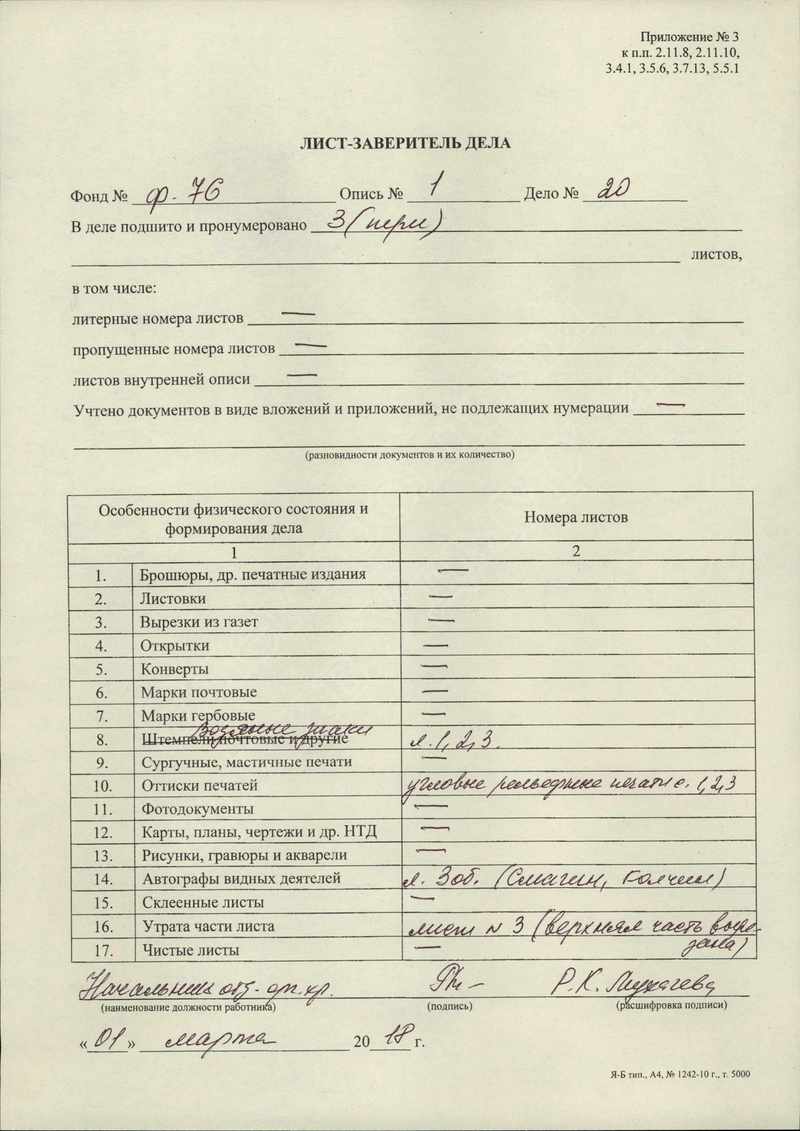 Приложение № 3
к п.п. 2.11.8, 2.11.10,
3.4.1, 3.5.6, 3.7.13, 5.5.1
ЛИСТ-ЗАВЕРИТЕЛЬ ДЕЛА
Фонд № Ф-76 Опись № 1 Дело № 20
В деле подшито и пронумеровано 3 (три)
листов,
в том числе:
литерные номера листов —
пропущенные номера листов —
листов внутренней описи —
Учтено документов в виде вложений и приложений, не подлежащих нумерации —
(разновидности документов и их количество)
Особенности физического состояния и формирования дела Номера листов
1 2
1. Брошюры, др. печатные издания —
2. Листовки —
3. Вырезки из газет —
4. Открытки —
5. Конверты —
6. Марки почтовые —
7. Марки гербовые —
водяные знаки
8. Штемпели почтовые и другие л. 1, 2, 3.
9. Сургучные, мастичные печати —
10. Оттиски печатей угловые рельефные печати л. 1, 2, 3
11. Фотодокументы —
12. Карты, планы, чертежи и др. НТД —
13. Рисунки, гравюры и акварели —
14. Автографы видных деятелей л. 3 об. (Смагин, Колчин)
15. Склеенные листы —
16. Утрата части листа лист № 3 (верхняя часть выре-
17. Чистые листы — зана)
Начальник отд. орг. хр. Р.К. Лихачева
(наименование должности работника) (подпись) (расшифровка подписи)
«01» марта 2018 г.
Я-Б тип., А4, № 1242-10 г., т. 5000